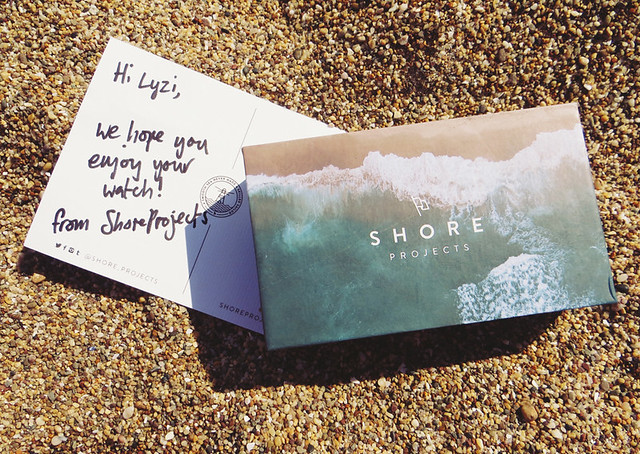 Hi Lyzi,
we hope you
enjoy your
watch!
from ShoreProjects
@SHORE.PROJECTS
SHOREPRO
SHORE
PROJECTS